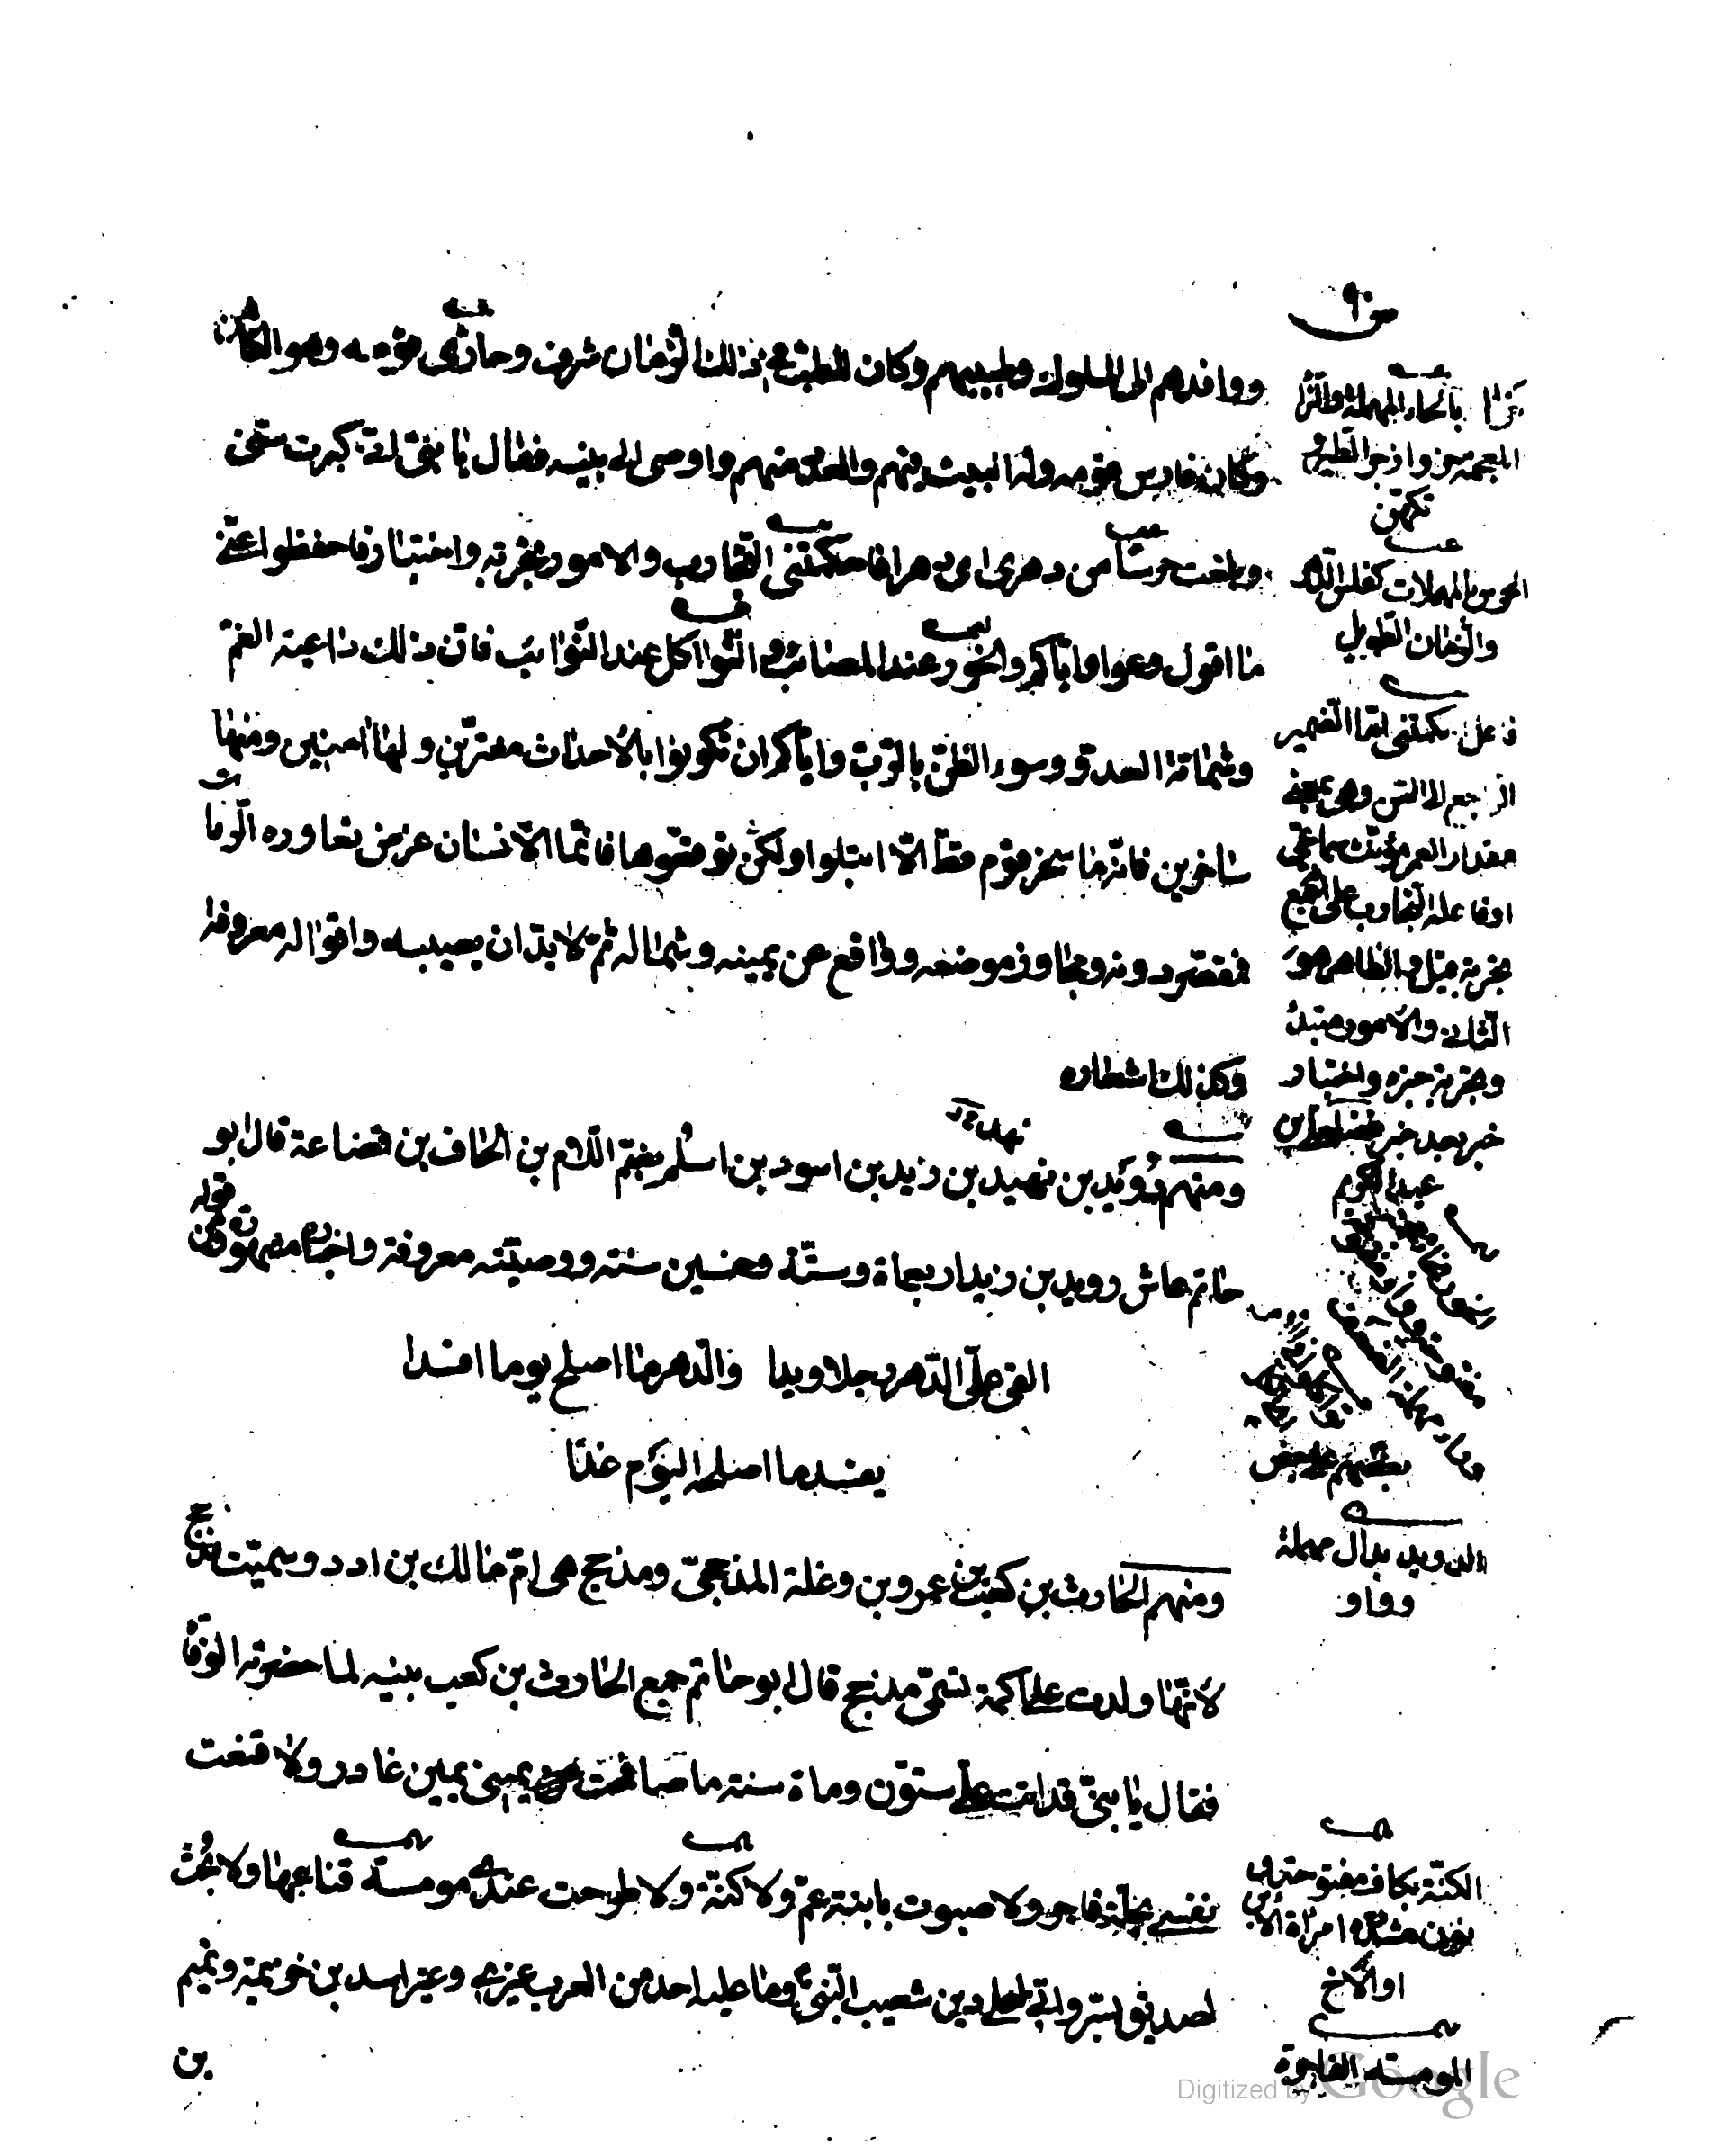 ووافدهم الى الملوك وطبيبهم وكان للطب فى ذلك الزمان شرف وحازى قومه وهو الكاهن
وكان فارس قومه وله البيت فيهم والعدد منهم واوصى الى بنيه فقال يا بنى انى كبرت سنى
وبلغت حرسا من دهرى اى دهرا فاحكمتنى التجارب والامور تجربة واختبار فاحفظوا عنى
ما اقول وعوا واياكم والخور عند المصائب والتواكل عند النوائب فان ذلك داعية الغم
وشماتة العدو وسوء الظن بالرب واياكم ان تكونوا بالاحداث مغترين ولها امنين ومنها
ساخرين فانه ما سخر قوم قط الا ابتلوا ولكن توقعوها فانما الانسان غرض تعاوره الرماة
فمقصر دونه ومجاوز موضعه وواقع عن يمينه وشماله ثم لا بد ان يصيبه واقواله معروفة
وكذلك اشعاره
نهد
ومنهم دُويد بن نهيد بن زيد بن اسود بن اسلُم بضم اللام بن الحاف بن قضاعة قال ابو
حاتم عاش دويد بن زيد اربعماة وستة وخمسين سنة ووصيته معروفة واخباره مشهورة فمن قوله
القى على الدهر رجلا ويدا والدهر ما اصلح يوما افسدا
يفسد ما اصلحه اليوم غدا
ومنهم الحارث بن كعب بن عمرو بن وعلة المذحجى ومذحج هى ام مالك بن ادد وسميت مذحج
لانها ولدت على اكمة تسمى مذحج قال ابو حاتم جمع الحارث بن كعب بنيه لما حضرته الوفاة
فقال يا بنى قد اتت على ستون وماة سنة ما صافحت يمينى يمين غادر ولا قنعت
نفسى بخلة فاجر ولا صبوت بابنة عم ولا كنة ولا طرحت عندى مومسة قناعها ولا بُحت
لصديق بسر وانى لعلى دين شعيب النبى وما عليه احد من العرب غيرى وغير اسد بن خزيمة وتميم
بن
حزا بالحاء المهملة والزا
المعجمة حزوا زجر الطير و
تكهن
الحرس بالمهملات كفلس الدهر
والزمان الطويل
فاعل حكمتنى اما الضمير
الراجع الى السن وهى بمعنى
مقدار العمر مؤنث سماعى
او فاعله التجارب على الجمع
تجربة قيل والظاهر هو
الثانى والامور مبتدأ
وتجربة خبره واختبار
خبر بعد خبر
عبد الكريم
بعضهم على بعض
الدويد بدال مهملة
وواو
الكنة بكاف مفتوحة و
نون مشددة امراة الابن
او الاخ
المومسة الفاجرة
Digitized by Google